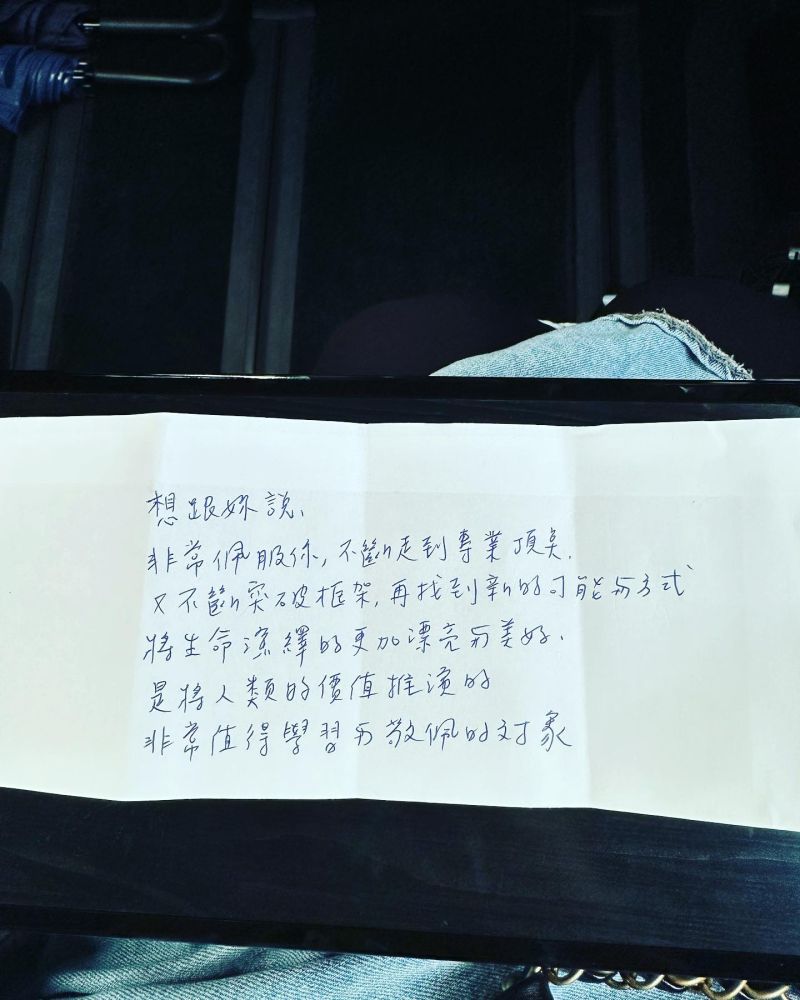 想跟妳說、
非常佩服你,不斷走到專業頂尖.
又不斷突破框架,再找到新的可能与方式
將生命演繹的更加漂亮与美好.
是將人類的價值推演的
非常值得學習与敬佩的对象